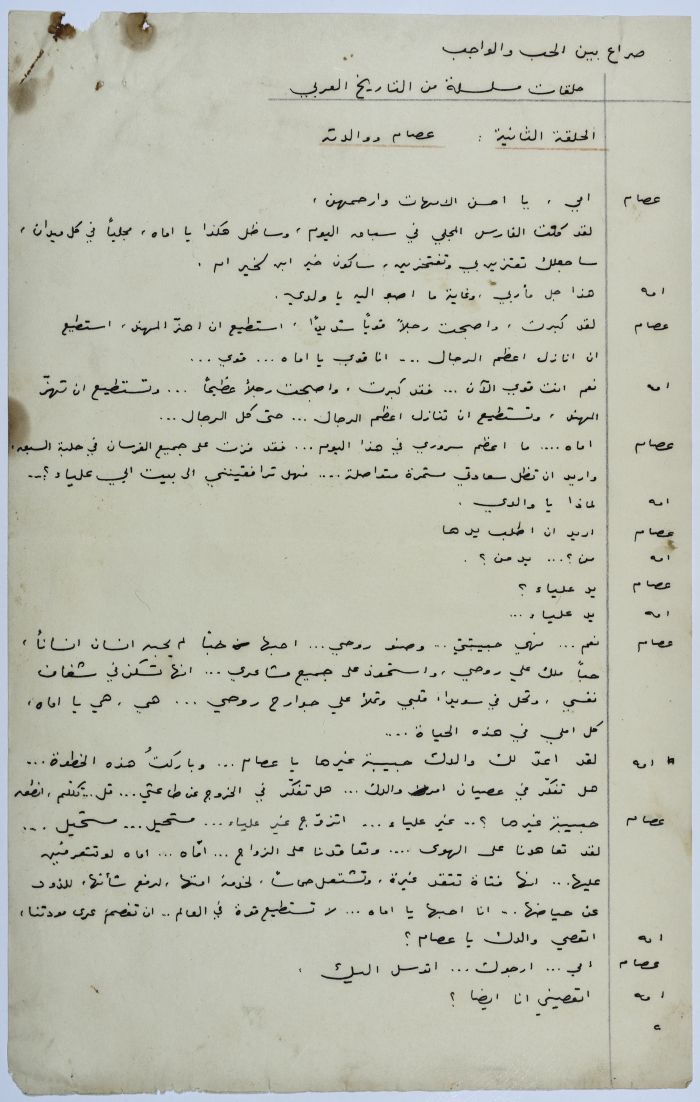 صراع بين الحب والواجب
حلقات مسلسلة من التاريخ العربي
الحلقة الثانية : عصام ووالدته
عصام امي ، يا احسن الامهات وارحمهن ،
لقد كنت الفارس المجلي في سباق اليوم ، وساظل هكذا يا اماه ، مجلياً في كل ميدان ،
ساجعلك تعتزين بي وتفتخرين ، ساكون خير ابن لخير ام .
امه هذا جل مأربي ، وغاية ما اصبو اليه يا ولدي .
عصام لقد كبرت ، واصبحت رجلاً قوياً شديداً ، استطيع ان اهزّ المهند ، استطيع
ان انازل اعظم الرجال ... انا قوي يا اماه ... قوي ...
امه نعم انت قوي الآن ... فقد كبرت ، واصبحت رجلاً عظيماً ... وتستطيع ان تهزّ
المهند ، وتستطيع ان تنازل اعظم الرجال ... حتى كل الرجال ...
عصام اماه .... ما اعظم سروري في هذا اليوم ... فقد فزت على جميع الفرسان في حلبة السبق ،
واريد ان تظل سعادتي مستمرة متواصلة .... فهل ترافقينني الى بيت ابي علياء ؟...
امه لماذا يا ولدي .
عصام اريد ان اطلب يدها
امه من ؟... يد من ؟ .
عصام يد علياء ؟
امه يد علياء ...
عصام نعم ... فهي حبيبتي ... وصنو روحي ... احبها حباً لم يحبه انسان انساناً ،
حباً ملك علي روحي ، واستحوذ على جميع مشاعري ... انها تسكن في شغاف
نفسي ، وتحل في سويداء قلبي وتملأ علي جوارح روحي ... هي ، هي يا اماه ،
كل املي في هذه الحياة ....
امه لقد اعدّ لك والدك حبيبة غيرها يا عصام ... وباركتُ هذه الخطوة ...
هل تفكّر في عصيان امر والدك ... هل تفكّر في الخروج عن طاعتي ... قل .. تكلّم ، انطق
عصام حبيبة غيرها ؟... غير علياء ... اتزوّج غير علياء ... مستحيل ... مستحيل ....
لقد تعاهدنا على الهوى .... وتعاقدنا على الزواج ... امّاه ... اماه لو تتعرفين
عليها ... انها فتاة تتقد غيرة ، وتشتعل حماسة ، لخدمة امتها ، لرفع شأنها ، للذود
عن حياضها ... انا احبها يا اماه ... لا تستطيع قوة في العالم .. ان تفصم عرى مودتنا ،
امه اتعصي والدك يا عصام ؟
عصام امي ... ارجوك ... اتوسل اليك .
امه اتعصيني انا ايضا ؟